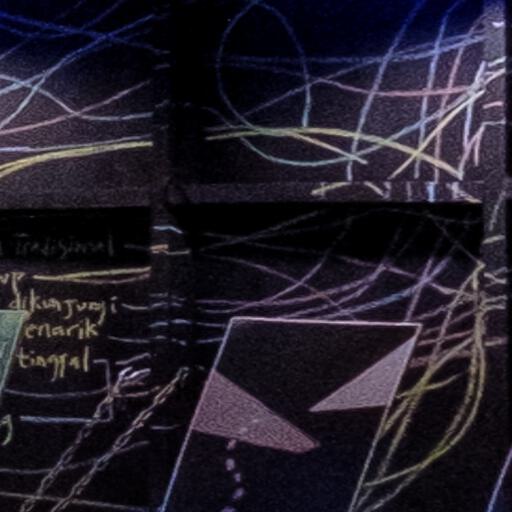 Tradisional
up
dikunjungi
enarik
tinggal
g